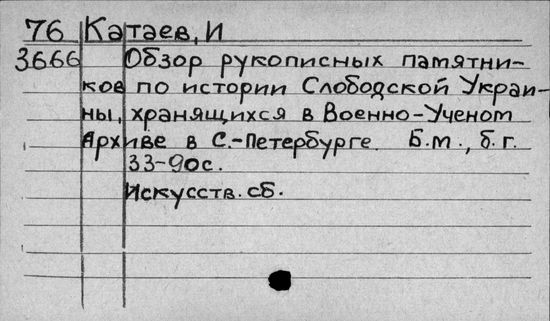 76 Катаев, И
3666 Обзор рукописных памятни-
ков по истории Слободской Украи-
ны, хранящихся в Военно-Ученом
Архиве в С.-Петербурге. Б.м., б.г.
33-90с.
Искусств. сб.